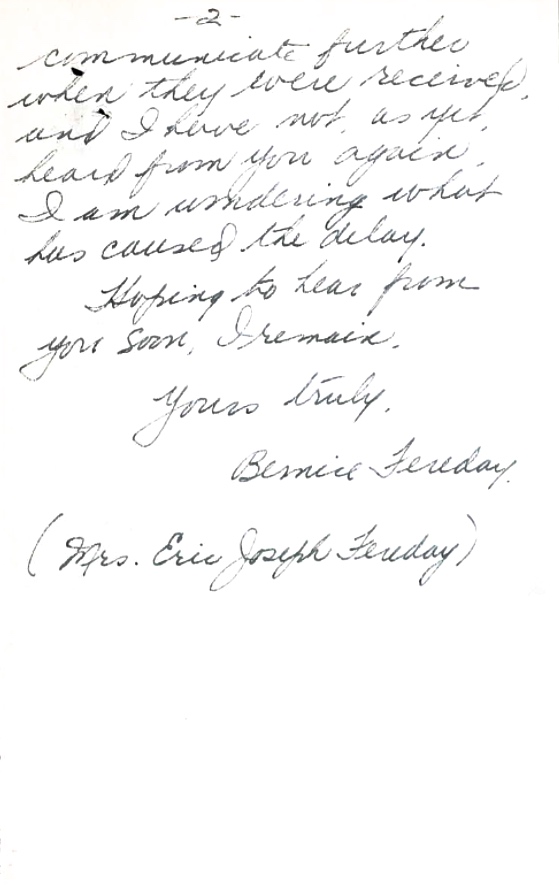 -2-
communicate further
when they were received,
and I have not, as yet,
heard from you again.
I am wondering what
has caused the delay.
Hoping to hear from
you soon, I remain.
Yours truly,
Bernice Fereday.
(Mrs. Eric Joseph Fereday)